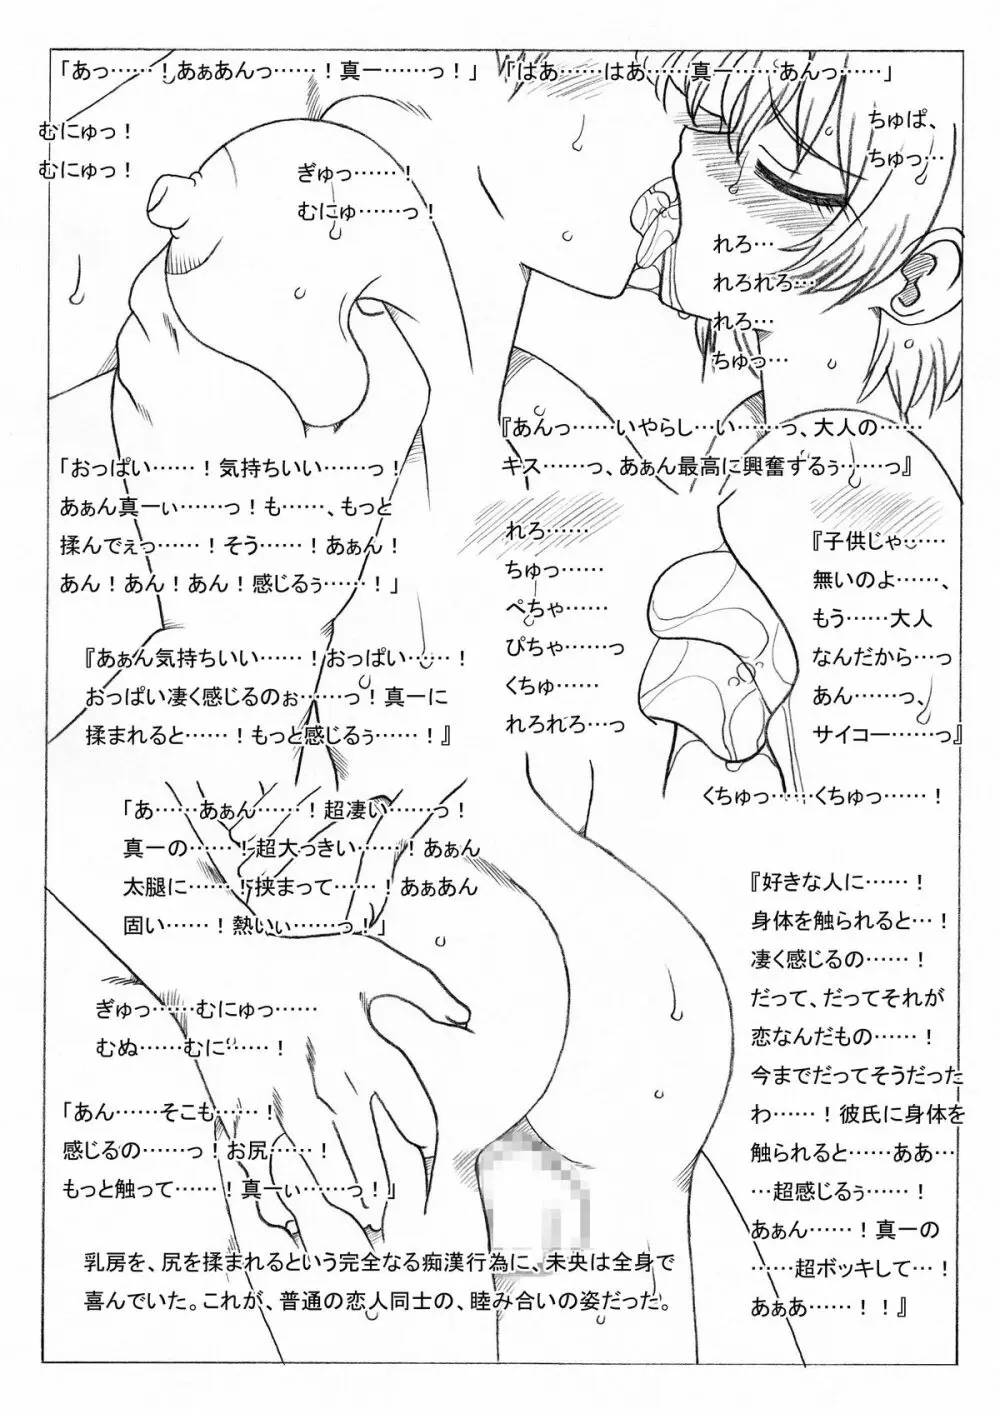 「あっ……！あぁあんっ……！真一……っ！」
「はあ……はあ……真一……あんっ……」
むにゅっ！
むにゅっ！
ぎゅっ……！
むにゅ……っ！
ちゅぱ、
ちゅっ…
れろ…
れろれろ…
れろ…
ちゅっ…
『あんっ……いやらし…い……っ、大人の……
キス……っ、あぁん最高に興奮するぅ……っ』
「おっぱい……！気持ちいい……っ！
あぁん真一ぃ……っ！も……、もっと
揉んでぇっ……！そう……！あぁん！
あん！あん！あん！感じるぅ……！」
れろ……
ちゅっ……
ぺちゃ……
ぴちゃ……っ
くちゅ……
れろれろ…っ
『子供じゃ……
無いのよ……、
もう……大人
なんだから…っ
あん……っ、
サイコー……っ』
『あぁん気持ちいい……！おっぱい……！
おっぱい凄く感じるのぉ……っ！真一に
揉まれると……！もっと感じるぅ……！』
くちゅっ……くちゅっ……！
「あ……あぁん……！超凄い……っ！
真一の……！超大っきい……！あぁん
太腿に……！挟まって……！あぁあん
固い……！熱いぃ……っ！」
『好きな人に……！
身体を触られると…！
凄く感じるの……！
だって、だってそれが
恋なんだもの……！
今までだってそうだった
わ……！彼氏に身体を
触られると……ああ…
…超感じるぅ……！
あぁん……！真一の
……超ボッキして…！
あぁあ……！！』
ぎゅっ……むにゅっ……
むぬ……むに……！
「あん……そこも……！
感じるの……っ！お尻……！
もっと触って……！真一ぃ……っ！」
乳房を、尻を揉まれるという完全なる痴漢行為に、未央は全身で
喜んでいた。これが、普通の恋人同士の、睦み合いの姿だった。